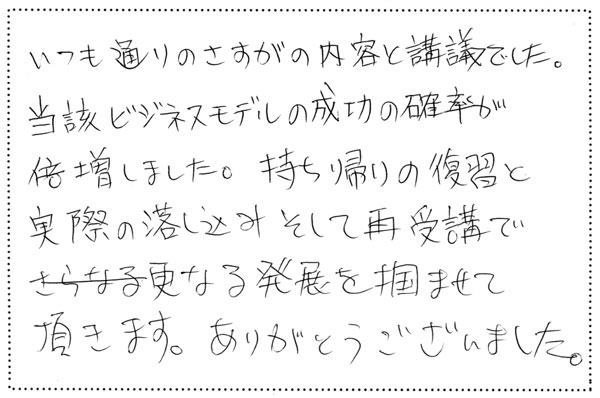 いつも通りのさすがの内容と講議でした。
当該ビジネスモデルの成功の確率が
倍増しました。持ち帰りの復習と
実際の落し込みそして再受講で
さらなる更なる発展を掴ませて
頂きます。ありがとうございました。